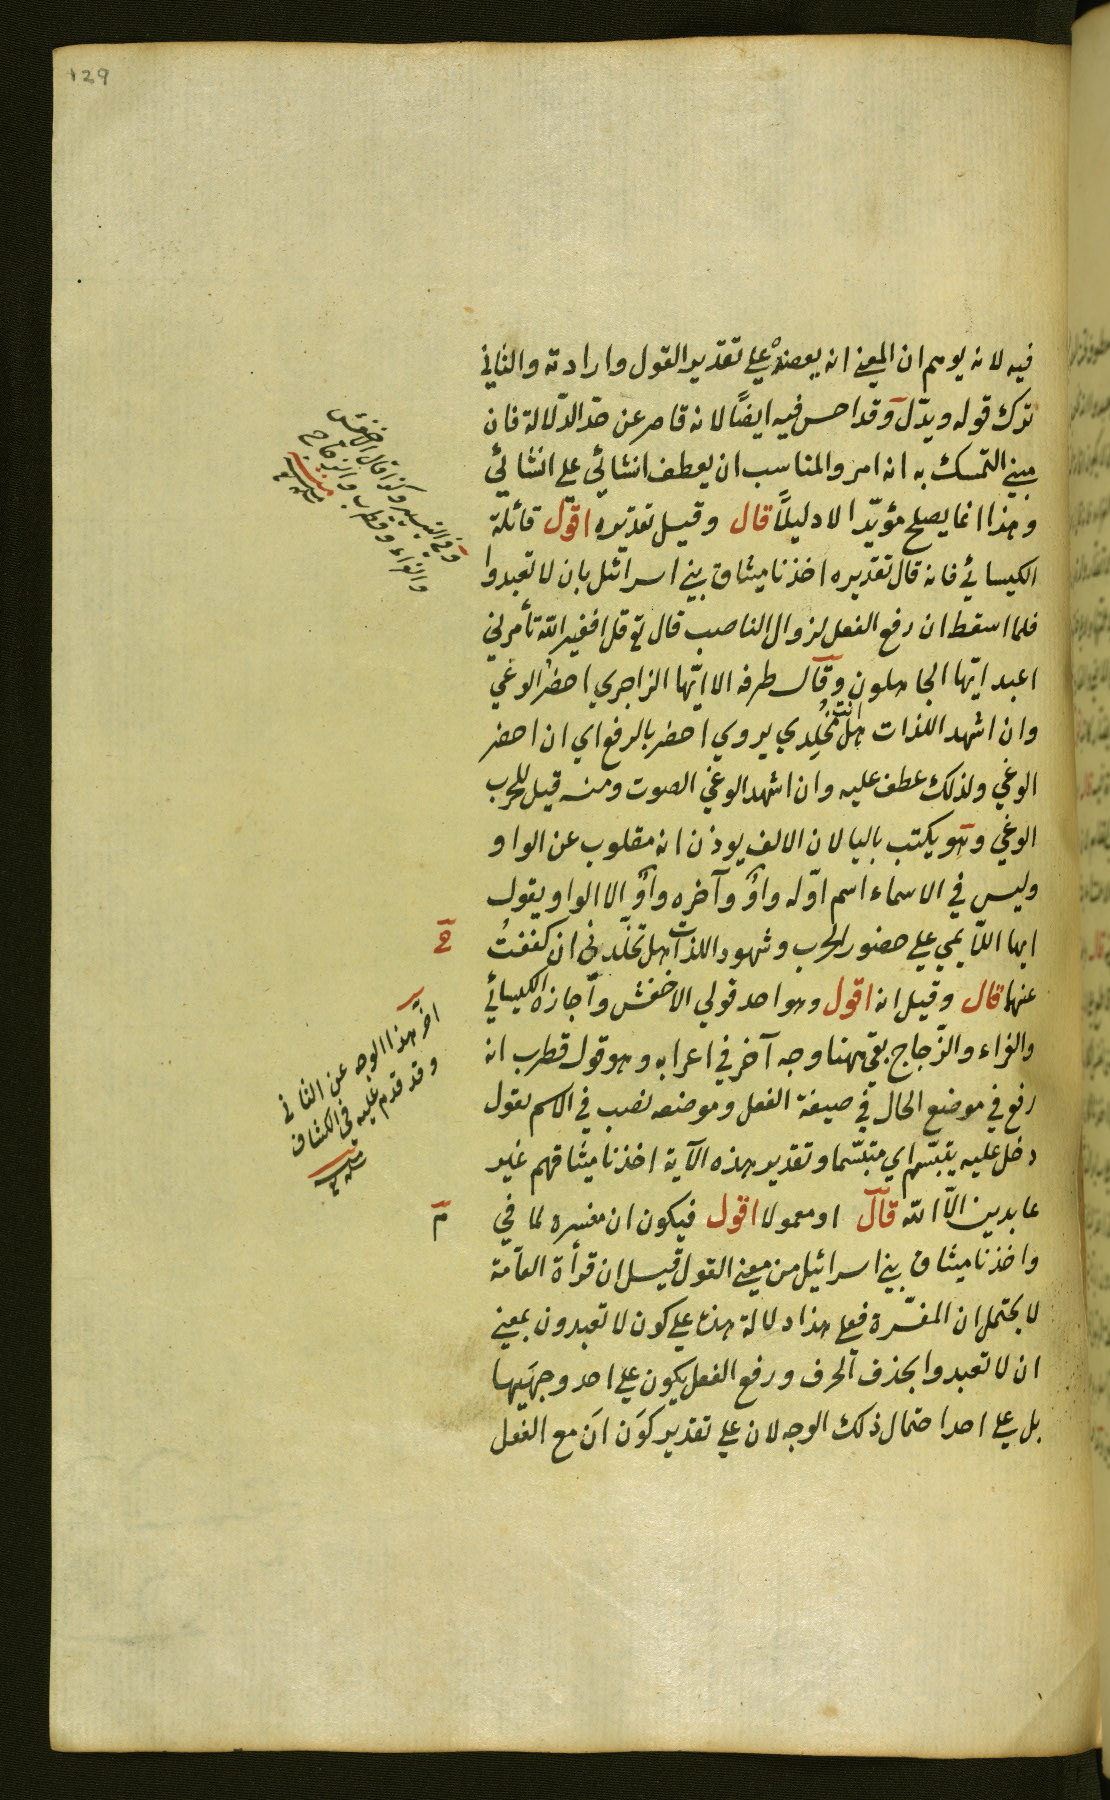 129
فيه لانه يوهم ان المعنى انه يعضده على تقدير القول وارادته والثاني
ترك قوله ويدل وقد احسن فيه ايضًا لانه قاصر عن حد الدلالة فان
مبنى التمسك به انه امر والمناسب ان يعطف انشائي على انشائي
وهذا انما يصلح مؤيّدا لا دليلًا قال وقيل تقديره اقول قائلة
الكيسائي فانه قال تقديره اخذنا ميثاق بني اسرائل بان لا تعبدوا
فلما اسقط ان رفع الفعل لزوال الناصب قال تع قل افغير الله تأمرني
اعبد ايّها الجاهلون وقال طرفه الا ايّها الزاجري احضر الوغي
وان اشهد اللذات هل انت مخلدي يروي احضر بالرفع اي ان احضر
الوغي ولذلك عطف عليه وان اشهد الوغي الصوت ومنه قيل للحرب
الوغي وهو يكتب باليا لان الالف يوذن انه مقلوب عن الواو
وليس في الاسماء اسم اوّله واوٌ وآخره واوٌ الا الواو يقول
ايها اللايمي على حضور الحرب وشهود اللذات هل تخلّدني ان كففتُ
عنها قال وقيل انه اقول وهو احد قولي الاخفش واجازه الكيسائي
والفراء والزّجاج بقي ههنا وجه آخر في اعرابه وهو قول قطرب انه
رفع في موضع الحال في صيغة الفعل وموضعه نصب في الاسم تقول
دخل عليه يتبسّم اي متبسّما وتقدير هذه الآية اخذنا ميثاقهم غير
عابدين الّا الله قال او معمولا اقول فيكون ان مفسره لما في
واخذنا ميثاق بني اسرائيل من معنى القول قيل ان قرأة العامّة
لا يحتمل ان المفسّرة فعلى هذا دلالة هذه على كون لا تعبدون بمعنى
ان لا تعبدوا بحذف الحرف ورفع الفعل يكون على احد وجهَيها
بل على احد احتمال ذلك الوجه لان على تقدير كوَن انَ مع الفعل
وفي التيسير وكذا قال الاخفش
والفراء وقطرب والزجاج
منه
اخّر هذا الوجه عن الثاني
وقد قدم عليه في الكشاف
منه
م